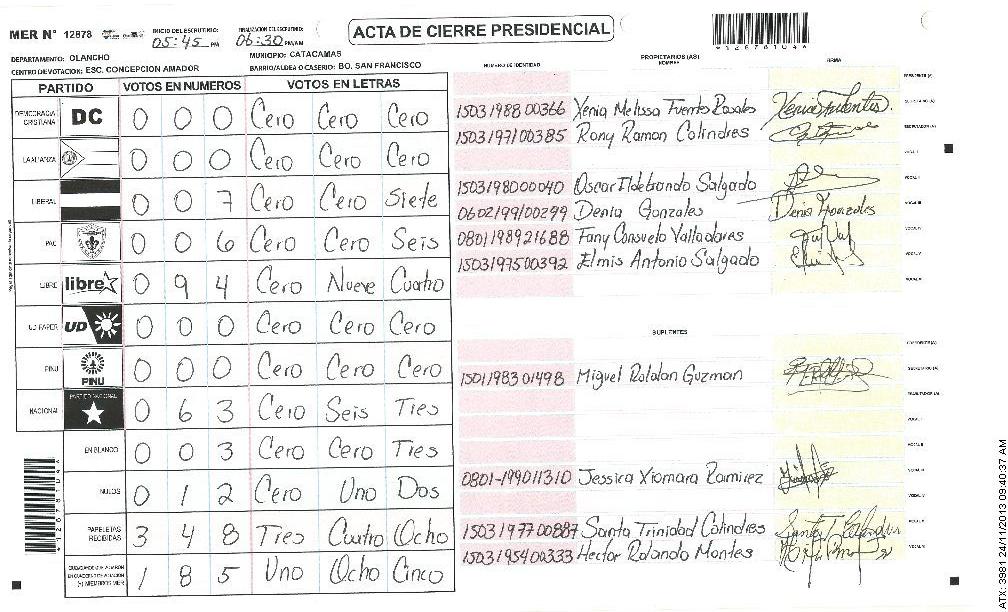 MER Nº 12878
INICIO DEL ESCRUTINIO: 05:45 PM
FINALIZACION DEL ESCRUTINIO: 06:30 PM/AM
ACTA DE CIERRE PRESIDENCIAL
DEPARTAMENTO: OLANCHO
MUNICIPIO: CATACAMAS
CENTRO DE VOTACION: ESC. CONCEPCION AMADOR
BARRIO/ALDEA O CASERIO: BO. SAN FRANCISCO
PARTIDO VOTOS EN NUMEROS VOTOS EN LETRAS
DEMOCRACIA CRISTIANA DC 0 0 0 Cero Cero Cero
LA ALIANZA 0 0 0 Cero Cero Cero
LIBERAL 0 0 7 Cero Cero Siete
PAC 0 0 6 Cero Cero Seis
LIBRE libre 0 9 4 Cero Nueve Cuatro
UD FAPER UD 0 0 0 Cero Cero Cero
PINU PINU 0 0 0 Cero Cero Cero
NACIONAL PARTIDO NACIONAL 0 6 3 Cero Seis Tres
EN BLANCO 0 0 3 Cero Cero Tres
NULOS 0 1 2 Cero Uno Dos
PAPELETAS RECIBIDAS 3 4 8 Tres Cuatro Ocho
1 8 5 Uno Ocho Cinco
NUMERO DE IDENTIDAD
PROPIETARIOS (AS)
NOMBRE
FIRMA
PRESIDENTE (A)
1503198800366 Xenia Melissa Fuentes Rosales SECRETARIO (A)
1503197100385 Rony Ramon Colindres ESCRUTADOR (A)
VOCAL I
1503198000040 Oscar Ildebrando Salgado VOCAL II
0602199100299 Denia Gonzales Denia Gonzales VOCAL III
0801198921688 Fany Consuelo Valladares VOCAL IV
1503197500392 Elmis Antonio Salgado VOCAL V
SUPLENTES
1501198301498 Miguel Rololan Guzman SECRETARIO (A)
ESCRUTADOR (A)
VOCAL I
VOCAL II
0801-199011310 Jessica Xiomara Ramirez VOCAL III
1503197700887 Santa Trinidad Colindres
1503195400333 Hector Rolando Montes
*12878104*
*12878104*
ATX: 3981 24/11/2013 09:40:37 AM